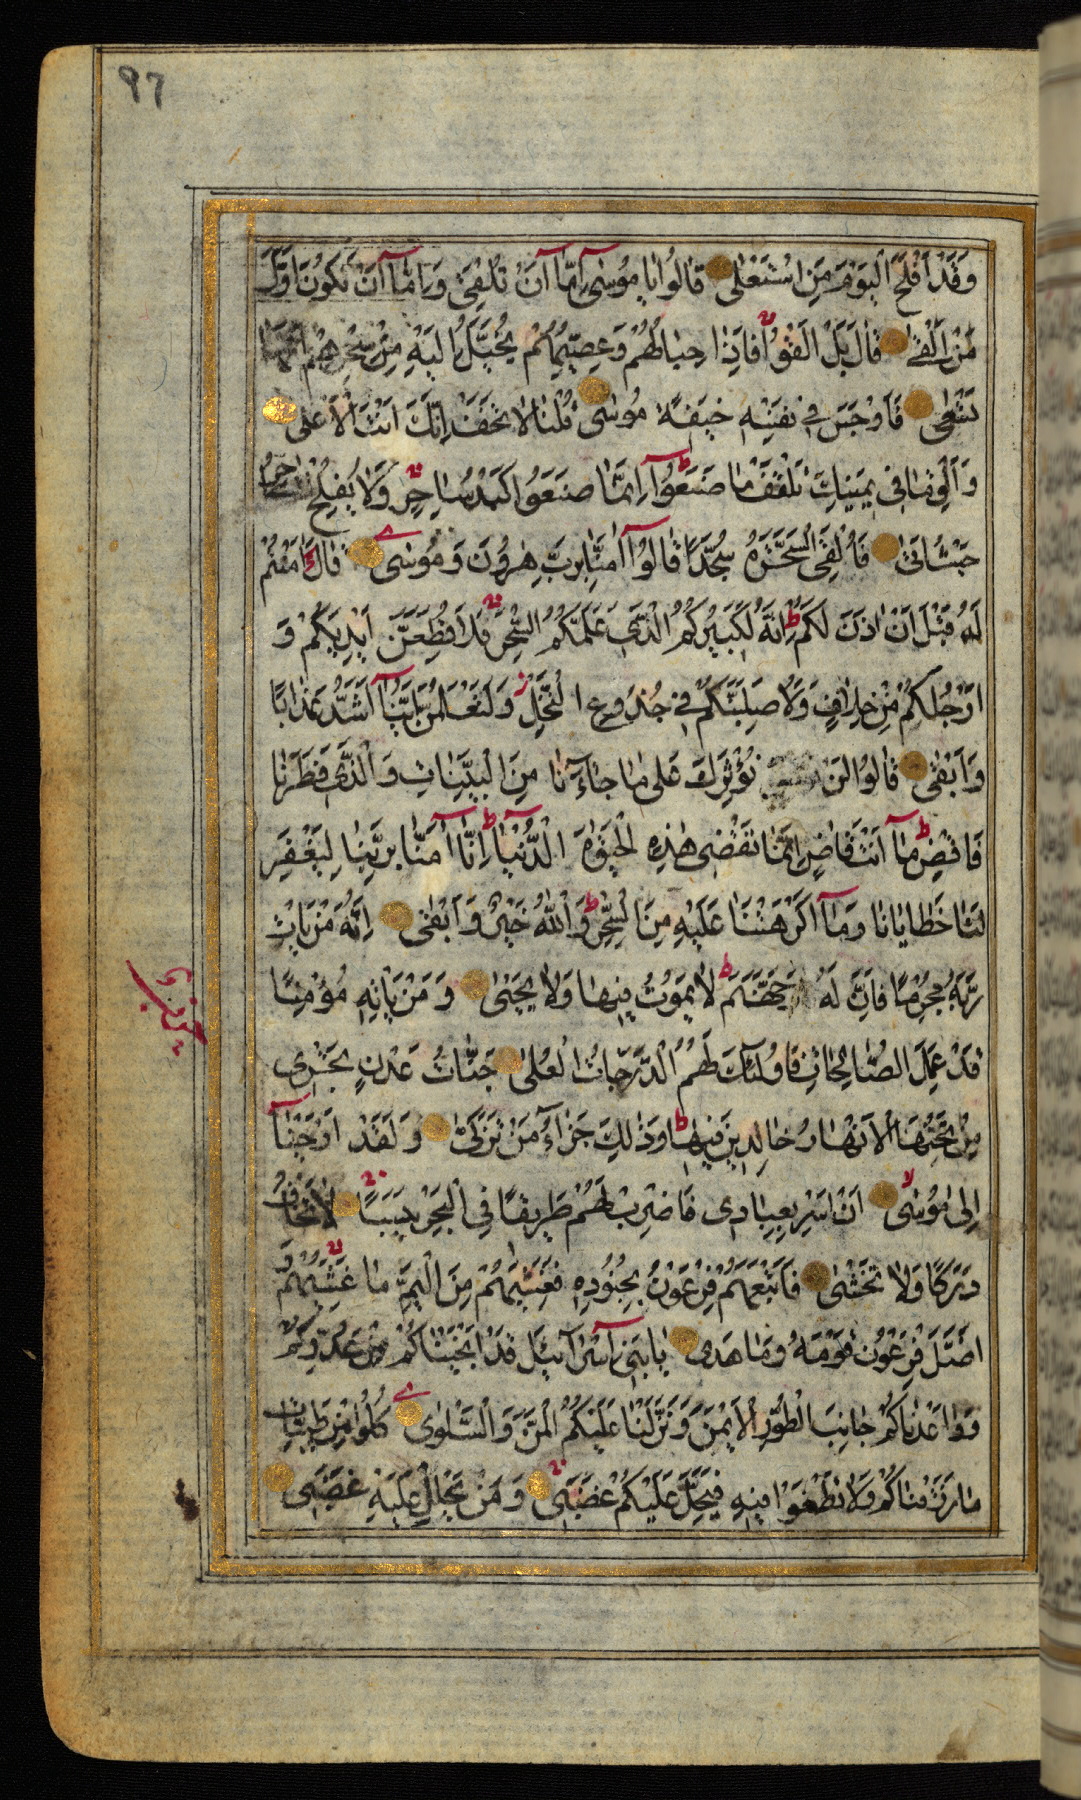 97
وَقَدْ اَفْلَحَ الْيَوْمَ مَنِ اسْتَعْلٰى قٰالُوا يٰا مُوسٰى اِمّٰا اَنْ تُلْقِىَ وَاِمّٰا اَنْ نَكُونَ اَوَّلَ
مَنْ اَلْقٰى قٰالَ بَلْ اَلْقُوا فَاِذٰا حِبٰالُهُمْ وَعِصِيُّهُمْ يُخَيَّلُ اِلَيْهِ مِنْ سِحْرِهِمْ اَنَّهٰا
تَسْعٰى فَاَوْجَسَ فِى نَفْسِهِ خِيفَةً مُوسٰى قُلْنٰا لٰا تَخَفْ اِنَّكَ اَنْتَ الْاَعْلٰى
وَاَلْقِ مٰا فِى يَمِينِكَ تَلْقَفْ مٰا صَنَعُوا اِنَّمٰا صَنَعُوا كَيْدُ سٰاحِرٍ وَلٰا يُفْلِحُ السّٰاحِرُ
حَيْثُ اَتٰى فَاُلْقِىَ السَّحَرَةُ سُجَّدًا قٰالُوا اٰمَنّٰا بِرَبِّ هٰرُونَ وَمُوسٰى قٰالَ اٰمَنْتُمْ
لَهُ قَبْلَ اَنْ اٰذَنَ لَكُمْ اِنَّهُ لَكَبِيرُكُمُ الَّذِى عَلَّمَكُمُ السِّحْرَ فَلَاُقَطِّعَنَّ اَيْدِيَكُمْ وَ
اَرْجُلَكُمْ مِنْ خِلٰافٍ وَلَاُصَلِّبَنَّكُمْ فِى جُذُوعِ النَّخْلِ وَلَتَعْلَمُنَّ اَيُّنٰا اَشَدُّ عَذٰابًا
وَاَبْقٰى قٰالُوا لَنْ نُؤْثِرَكَ عَلٰى مٰا جٰاءَنٰا مِنَ الْبَيِّنٰاتِ وَالَّذِى فَطَرَنٰا
فَاقْضِ مٰا اَنْتَ قٰاضٍ اِنَّمٰا تَقْضِى هٰذِهِ الْحَيٰوةَ الدُّنْيٰا اِنّٰا اٰمَنّٰا بِرَبِّنٰا لِيَغْفِرَ
لَنٰا خَطٰايٰانٰا وَمٰا اَكْرَهْتَنٰا عَلَيْهِ مِنَ السِّحْرِ وَاللّٰهُ خَيْرٌ وَاَبْقٰى اِنَّهُ مَنْ يَاْتِ
رَبَّهُ مُجْرِمًا فَاِنَّ لَهُ جَهَنَّمَ لٰا يَمُوتُ فِيهٰا وَلٰا يَحْيٰى وَمَنْ يَاْتِهِ مُؤْمِنًا
قَدْ عَمِلَ الصّٰالِحٰاتِ فَاُولٰئِكَ لَهُمُ الدَّرَجٰاتُ الْعُلٰى جَنّٰاتُ عَدْنٍ تَجْرِى
مِنْ تَحْتِهَا الْاَنْهٰارُ خٰالِدِينَ فِيهٰا وَذٰلِكَ جَزٰاءُ مَنْ تَزَكّٰى وَلَقَدْ اَوْحَيْنٰا
اِلٰى مُوسٰى اَنْ اَسْرِ بِعِبٰادِى فَاضْرِبْ لَهُمْ طَرِيقًا فِى الْبَحْرِ يَبَسًا لٰا تَخٰافُ
دَرَكًا وَلٰا تَخْشٰى فَاَتْبَعَهُمْ فِرْعَوْنُ بِجُنُودِهِ فَغَشِيَهُمْ مِنَ الْيَمِّ مٰا غَشِيَهُمْ وَ
اَضَلَّ فِرْعَوْنُ قَوْمَهُ وَمٰا هَدٰى يٰا بَنِى اِسْرٰائِيلَ قَدْ اَنْجَيْنٰاكُمْ مِنْ عَدُوِّكُمْ
وَوٰاعَدْنٰاكُمْ جٰانِبَ الطُّورِ الْاَيْمَنَ وَنَزَّلْنٰا عَلَيْكُمُ الْمَنَّ وَالسَّلْوٰى كُلُوا مِنْ طَيِّبٰاتِ
مٰا رَزَقْنٰاكُمْ وَلٰا تَطْغَوْا فِيهِ فَيَحِلَّ عَلَيْكُمْ غَضَبِى وَمَنْ يَحْلِلْ عَلَيْهِ غَضَبِى